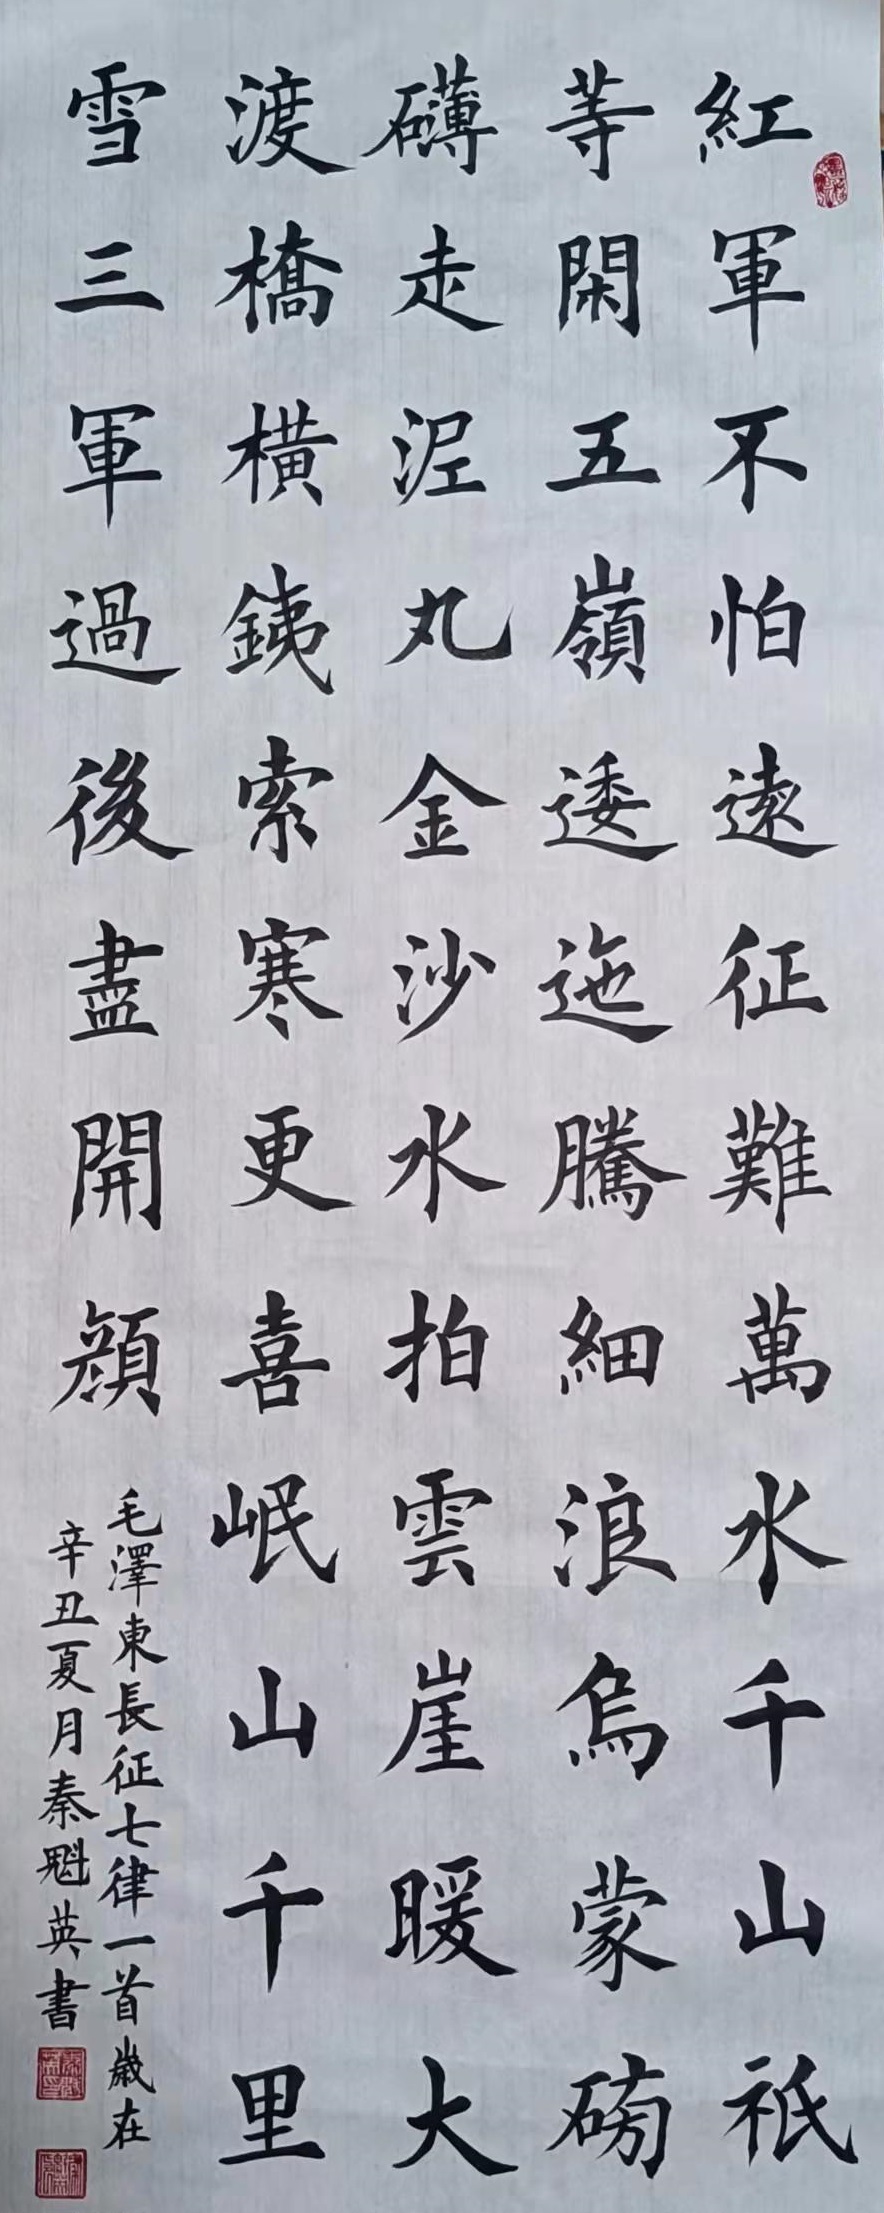 紅軍不怕遠征難萬水千山祇
等閑五嶺逶迤騰細浪烏蒙磅
礴走泥丸金沙水拍雲崖暖大
渡橋橫鐵索寒更喜岷山千里
雪三軍過後盡開顔
毛澤東長征七律一首歲在
辛丑夏月秦魁英書